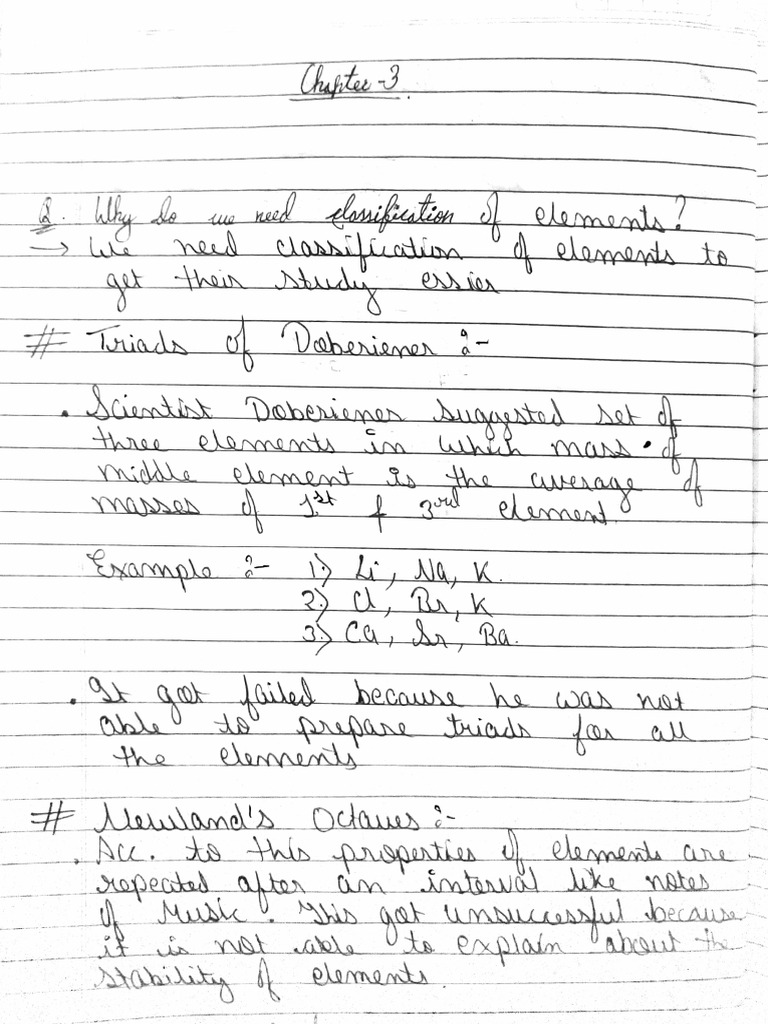 Chapter-3.
Q. Why do we need classification of elements?
→ We need classification of elements to
get their study essier
# Triads of Doberiener :-
• Scientist Doberiener suggested set of
three elements in which mass of
middle element is the average of
masses of 1st & 3rd element.
Example :- 1) Li, Na, K.
2) Cl, Br, K
3) Ca, Sr, Ba.
• It got failed because he was not
able to prepare triads for all
the elements
# Newland's Octaves :-
• Acc. to this properties of elements are
repeated after an interval like notes
of Music. This got unsuccessful because
it is not able to explain about the
stability of elements.